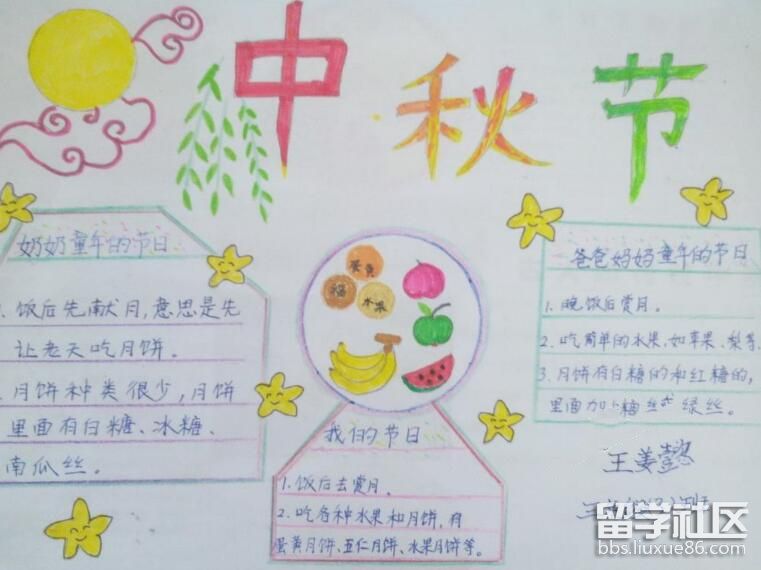 中秋节
奶奶童年的节日
1. 饭后先献月,意思是先
让老天吃月饼。
2. 月饼种类很少,月饼
里面有白糖、冰糖、
南瓜丝。
蛋黄
福
水果
我们的节日
1. 饭后去赏月。
2. 吃各种水果和月饼,有
蛋黄月饼、五仁月饼、水果月饼等。
爸爸妈妈童年的节日
1. 晚饭后赏月。
2. 吃简单的水果,如苹果、梨等
3. 月饼有白糖的和红糖的,
里面加上糖丝或绿丝。
王姜懿
留学社区
bbs.liuxue86.com